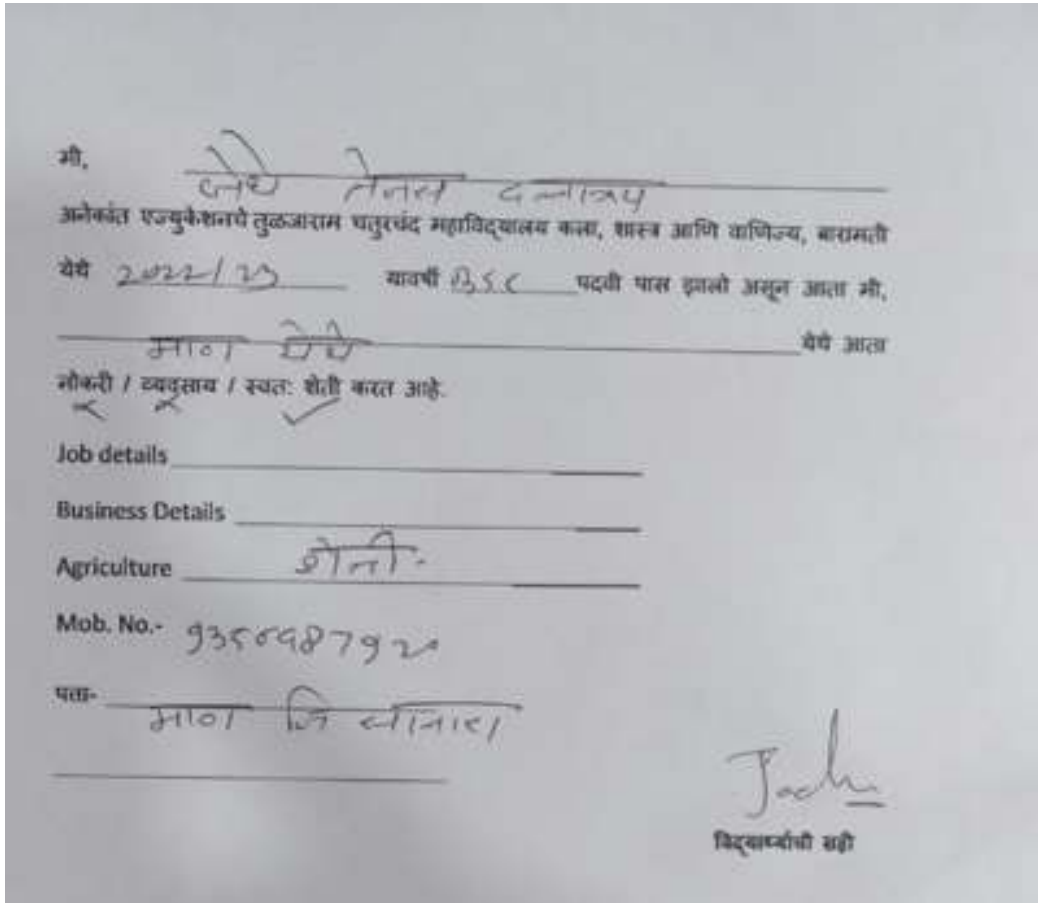 मी,
तेजस दत्तात्रय
अनेकांत एज्युकेशनचे तुळजाराम चतुरचंद महाविद्यालय कला, शास्त्र आणि वाणिज्य, बारामती
येथे 2022/23 यावर्षी BSC पदवी पास झालो असून आता मी,
माण येथे येथे आता
नोकरी / व्यवसाय / स्वतः शेती करत आहे.
Job details
Business Details
Agriculture शेती.
Mob. No.-
पता- माण जि सातारा
विद्यार्थ्याची सही